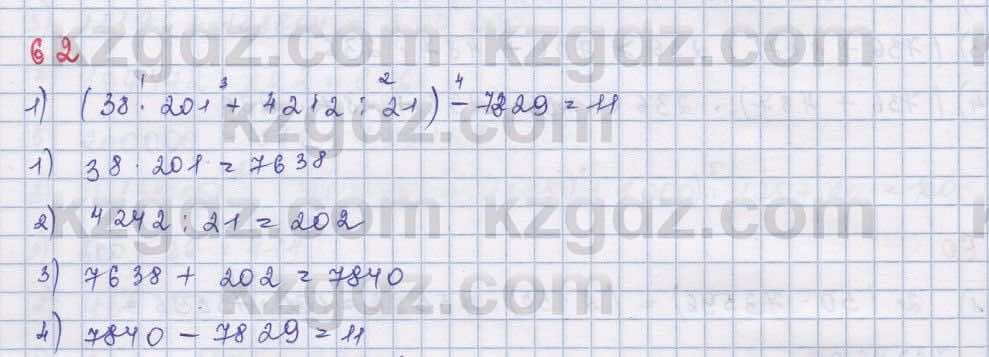 kzgdz.com kzgdz.com
62
1) (38 · 201 + 4242 : 21) - 7829 = 11
1 3 2 4
kzgdz.com
1) 38 · 201 = 7638
2) 4242 : 21 = 202
kzgdz.com kzgdz.com
3) 7638 + 202 = 7840
kzgdz.com
4) 7840 - 7829 = 11
kzgdz.com kzgdz.com